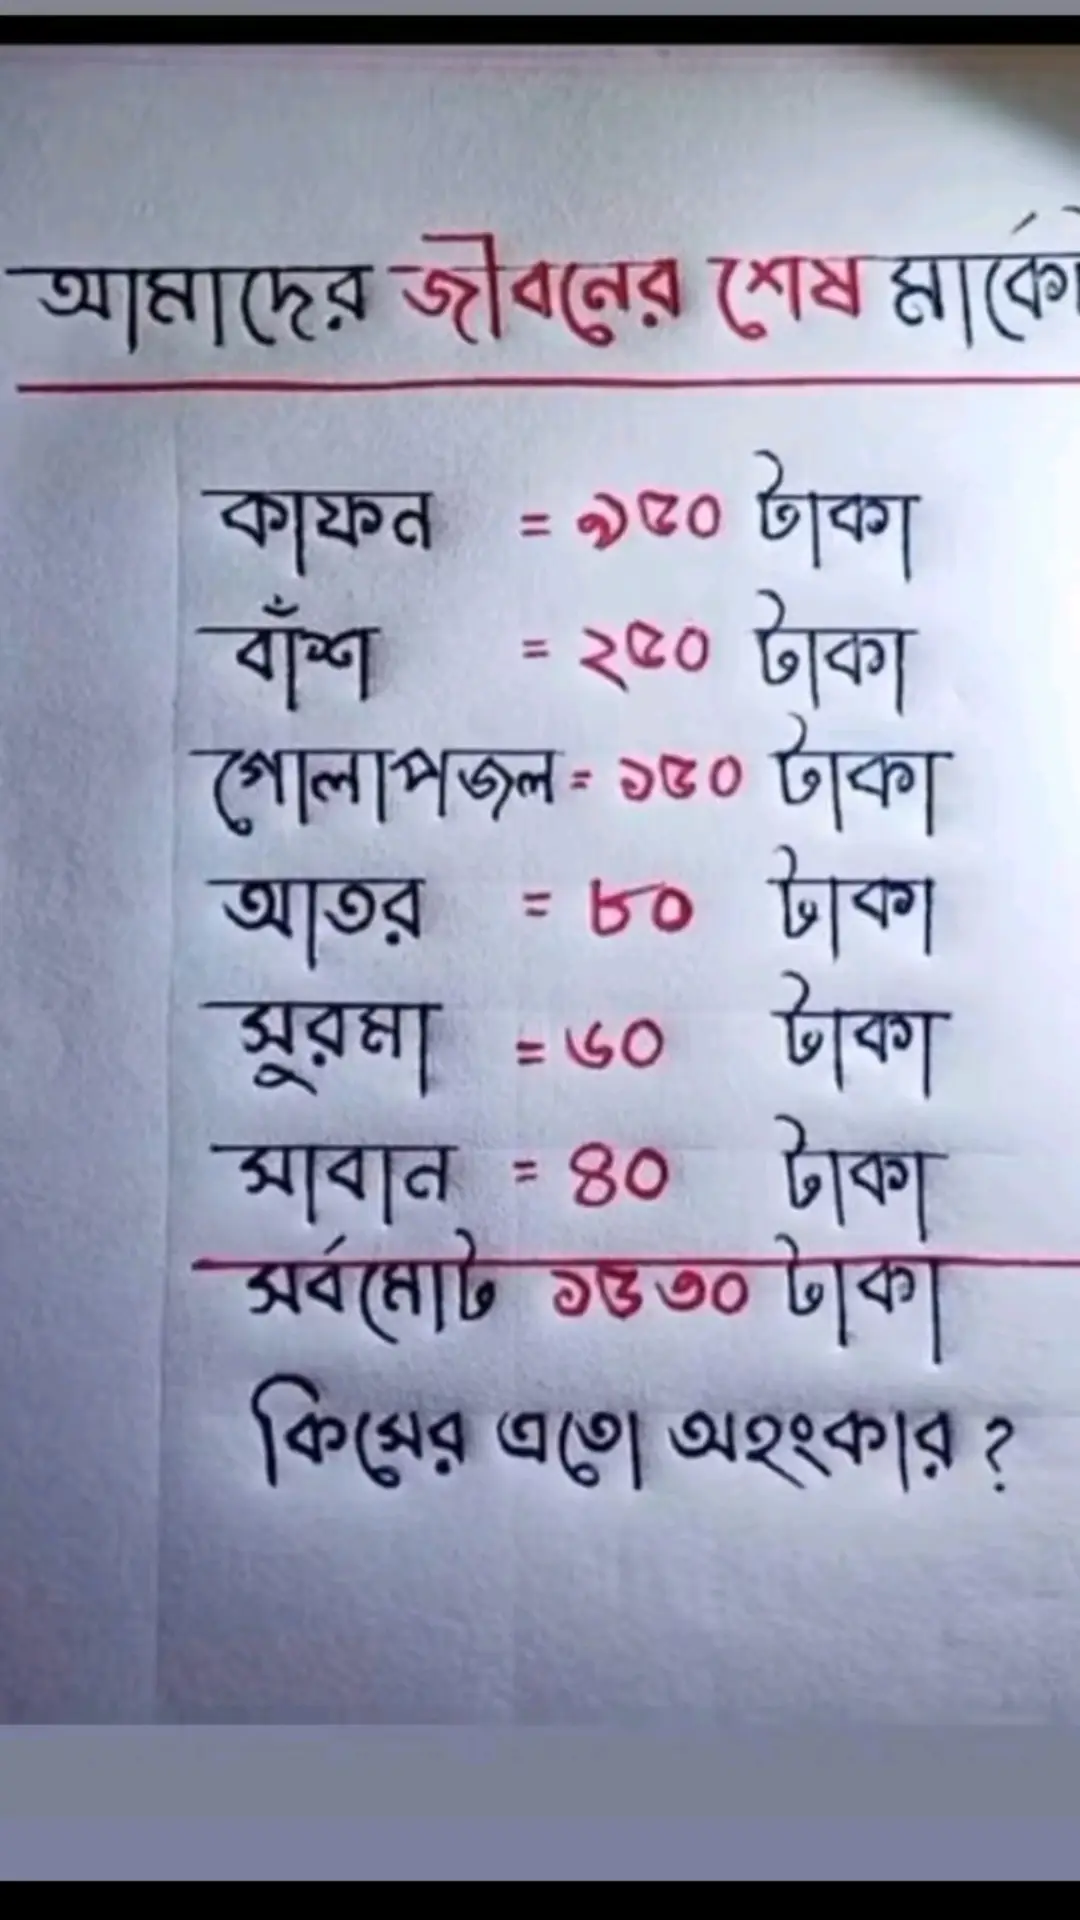 আমাদের জীবনের শেষ
কাফন = ৯৫০ টাকা
বাঁশ = ২৫০ টাকা
গোলাপজল = ১৫০ টাকা
আতর = ৮০ টাকা
সুরমা = ৬০ টাকা
সাবান = ৪০ টাকা
সর্বমোট ১৫৩০ টাকা
কিসের এতো অহংকার ?